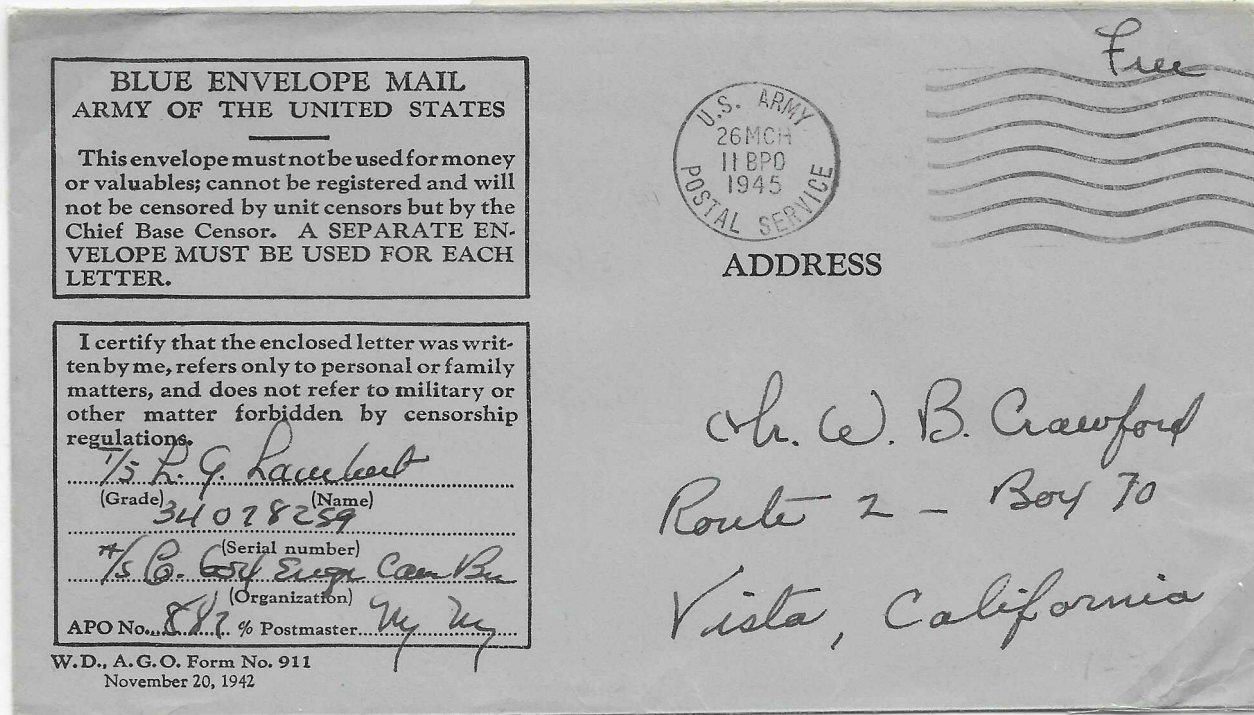 BLUE ENVELOPE MAIL
ARMY OF THE UNITED STATES
This envelope must not be used for money
or valuables; cannot be registered and will
not be censored by unit censors but by the
Chief Base Censor. A SEPARATE EN-
VELOPE MUST BE USED FOR EACH
LETTER.
I certify that the enclosed letter was writ-
ten by me, refers only to personal or family
matters, and does not refer to military or
other matter forbidden by censorship
regulations.
T/5 L. G. Lambert
(Grade) (Name)
34078259
(Serial number)
H/S Co. Engr Cam Bn
(Organization)
APO No. 887 % Postmaster NY NY
W.D., A.G.O. Form No. 911
November 20, 1942
Free
U.S. ARMY
26 MCH
11 BPO
1945
POSTAL SERVICE
ADDRESS
Mr. W. B. Crawford
Route 2 - Box 70
Vista, California